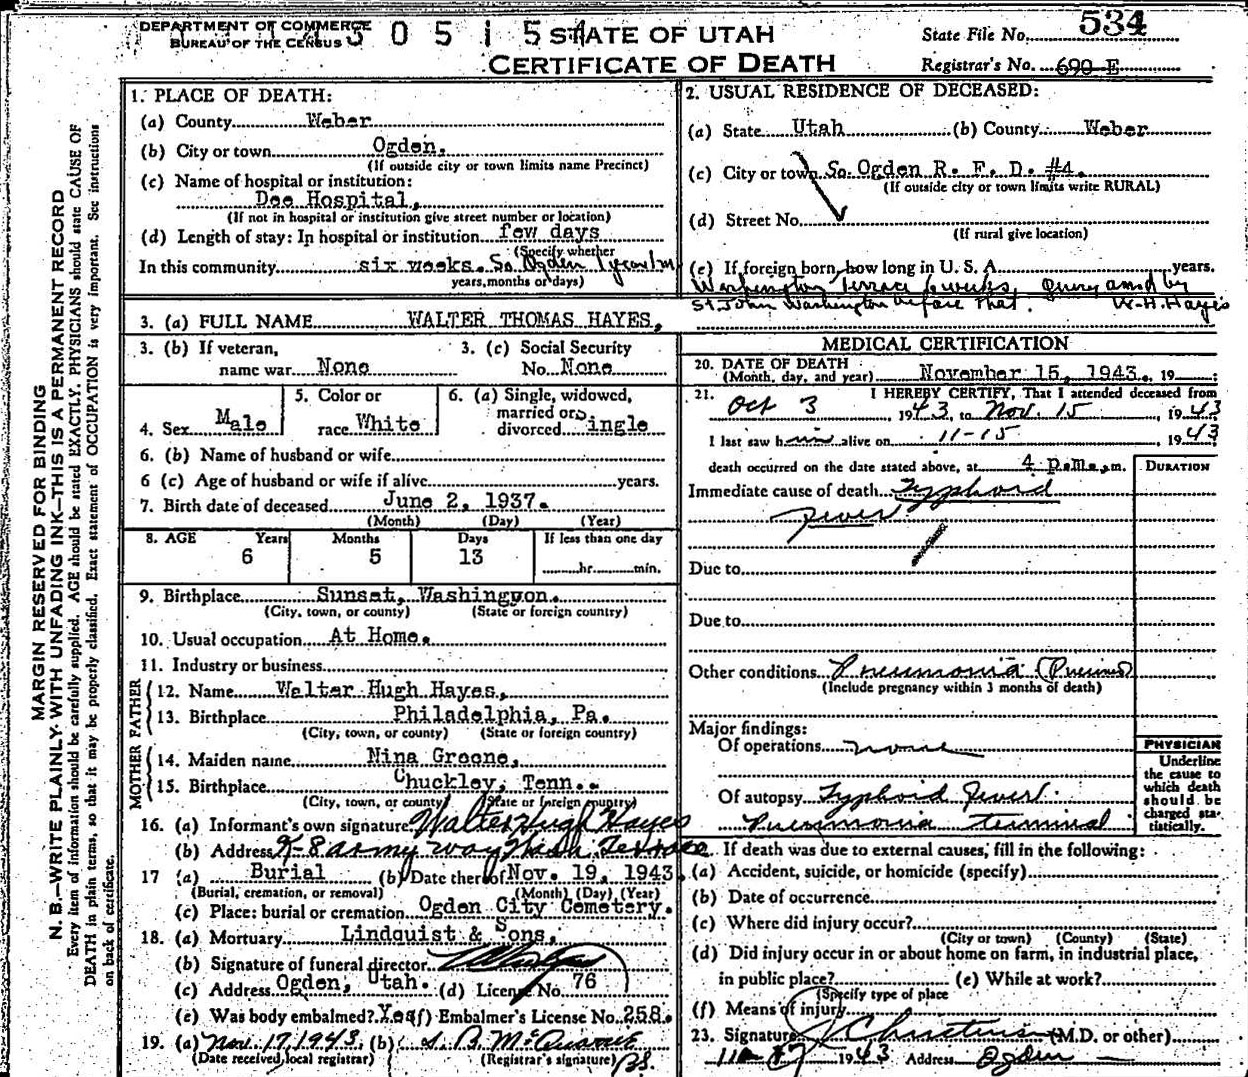 DEPARTMENT OF COMMERCE
BUREAU OF THE CENSUS
STATE OF UTAH
CERTIFICATE OF DEATH
State File No. 534
Registrar's No. 690-E
MARGIN RESERVED FOR BINDING
N. B.—WRITE PLAINLY WITH UNFADING INK—THIS IS A PERMANENT RECORD
Every item of information should be carefully supplied. AGE should be stated EXACTLY. PHYSICIANS should state CAUSE OF
DEATH in plain terms, so that it may be properly classified. Exact statement of OCCUPATION is very important. See instructions
on back of certificate.
1. PLACE OF DEATH:
(a) County Weber
(b) City or town Ogden.
(If outside city or town limits name Precinct)
(c) Name of hospital or institution:
Dee Hospital,
(If not in hospital or institution give street number or location)
(d) Length of stay: In hospital or institution few days
(Specify whether
In this community six weeks. So. Ogden 1 year 1m
years, months or days)
2. USUAL RESIDENCE OF DECEASED:
(a) State Utah (b) County Weber
(c) City or town So. Ogden R. F. D. #4.
(If outside city or town limits write RURAL)
(d) Street No.
(If rural give location)
(e) If foreign born, how long in U. S. A. years.
Washington Terrace 6 weeks, query ansd by
St. John Washington before that. W. H. Hayes
3. (a) FULL NAME WALTER THOMAS HAYES,
3. (b) If veteran,
name war None
3. (c) Social Security
No. None
4. Sex Male
5. Color or
race White
6. (a) Single, widowed,
married or
divorced Single
6. (b) Name of husband or wife
6 (c) Age of husband or wife if alive years.
7. Birth date of deceased June 2, 1937.
(Month) (Day) (Year)
8. AGE Years Months Days If less than one day
6 5 13 hr. min.
9. Birthplace Sunset, Washingvon.
(City, town, or county) (State or foreign country)
10. Usual occupation At Home.
11. Industry or business
FATHER
12. Name Walter Hugh Hayes,
13. Birthplace Philadelphia, Pa.
(City, town, or county) (State or foreign country)
MOTHER
14. Maiden name Nina Greene,
15. Birthplace Chuckley, Tenn.
(City, town, or county) (State or foreign country)
16. (a) Informant's own signature Walter Hugh Hayes
(b) Address K-8 army way Wash. Terrace
17 (a) Burial (b) Date thereof Nov. 19, 1943.
(Burial, cremation, or removal) (Month) (Day) (Year)
(c) Place: burial or cremation Ogden City Cemetery.
18. (a) Mortuary Lindquist & Sons,
(b) Signature of funeral director
(c) Address Ogden, Utah. (d) License No. 76
(e) Was body embalmed? Yes (f) Embalmer's License No. 258.
19. (a) Nov. 17, 1943 (b)
(Date received local registrar) (Registrar's signature)
MEDICAL CERTIFICATION
20. DATE OF DEATH
(Month, day, and year) November 15, 1943. , 19
21. I HEREBY CERTIFY, That I attended deceased from
Oct 3 1943, to Nov. 15, 1943
I last saw him alive on 11-15, 1943
death occurred on the date stated above, at 4 p.m. m.
DURATION
Immediate cause of death Typhoid
Fever
Due to
Due to
Other conditions Pneumonia
(Include pregnancy within 3 months of death)
Major findings:
Of operations none
Of autopsy Typhoid Fever.
Pneumonia terminal
PHYSICIAN
Underline
the cause to
which death
should be
charged sta-
tistically.
22. If death was due to external causes, fill in the following:
(a) Accident, suicide, or homicide (specify)
(b) Date of occurrence
(c) Where did injury occur?
(City or town) (County) (State)
(d) Did injury occur in or about home on farm, in industrial place,
in public place? (e) While at work?
(Specify type of place
(f) Means of injury
23. Signature (M.D. or other)
1943 Address Ogden